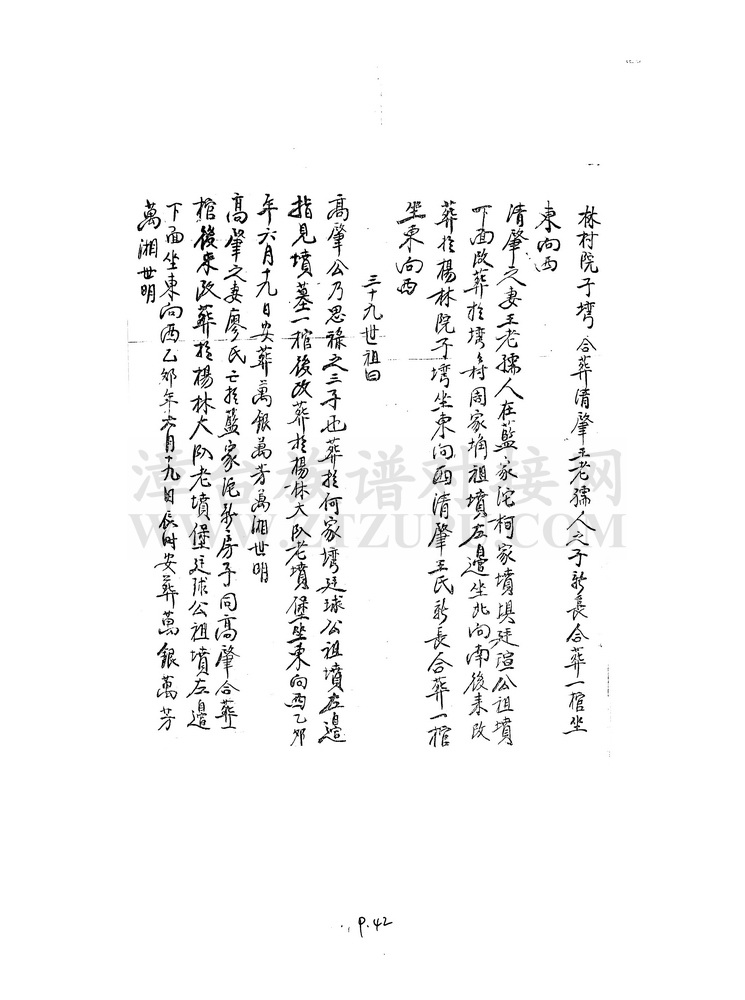 林村院子塆合葬清肇王老孺人之子新長合葬一棺坐
東向西
清肇之妻王老孺人在藍家沱柯家墳埧廷瑄公祖墳
下面改葬於塆村周家埆祖墳左邊坐北向南後來改
葬於楊林院子塆坐東向西清肇王氏新長合葬一棺
坐東向西
三十九世祖曰
高肇公乃思祿之三子也葬於何家塆廷球公祖墳左邊
指見墳墓一棺後改葬於楊林大队老墳堡坐東向西乙卯
年六月十九日安葬萬銀萬芳萬湘世明
高肇之妻廖氏亡於藍家沱新房子同高肇合葬一
棺後来改葬於楊林大队老墳堡廷球公祖墳左邊
下面坐東向西乙卯年六月十九日辰时安葬萬銀萬芳
萬湘世明
WWW.ZTZUPU.COM
P.42